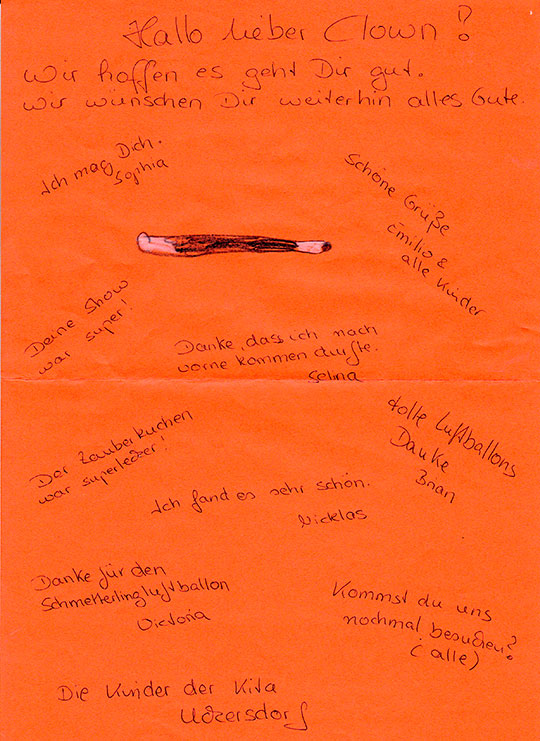 Hallo lieber Clown!
Wir hoffen es geht Dir gut.
Wir wünschen Dir weiterhin alles Gute.
Ich mag Dich.
Sophia
Schöne Grüße
Emilio &
alle Kinder
Deine Show
war super!
Danke, dass ich nach
vorne kommen durfte.
Selina
Der Zauberkuchen
war superlecker!
tolle Luftballons
Danke
Brian
Ich fand es sehr schön.
Nicklas
Danke für den
Schmetterlingluftballon
Victoria
Kommst du uns
nochmal besuchen?
(alle)
Die Kinder der Kita